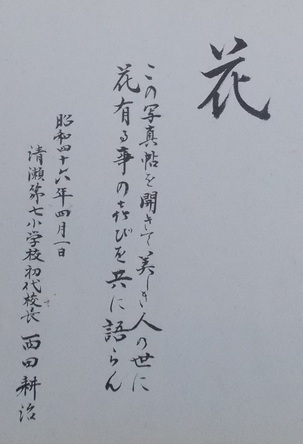 花
この写真帖を開きて美しき人の世に
花有る事の喜びを共に語らん
昭和四十六年四月一日
清瀬第七小学校初代校長 西田耕治